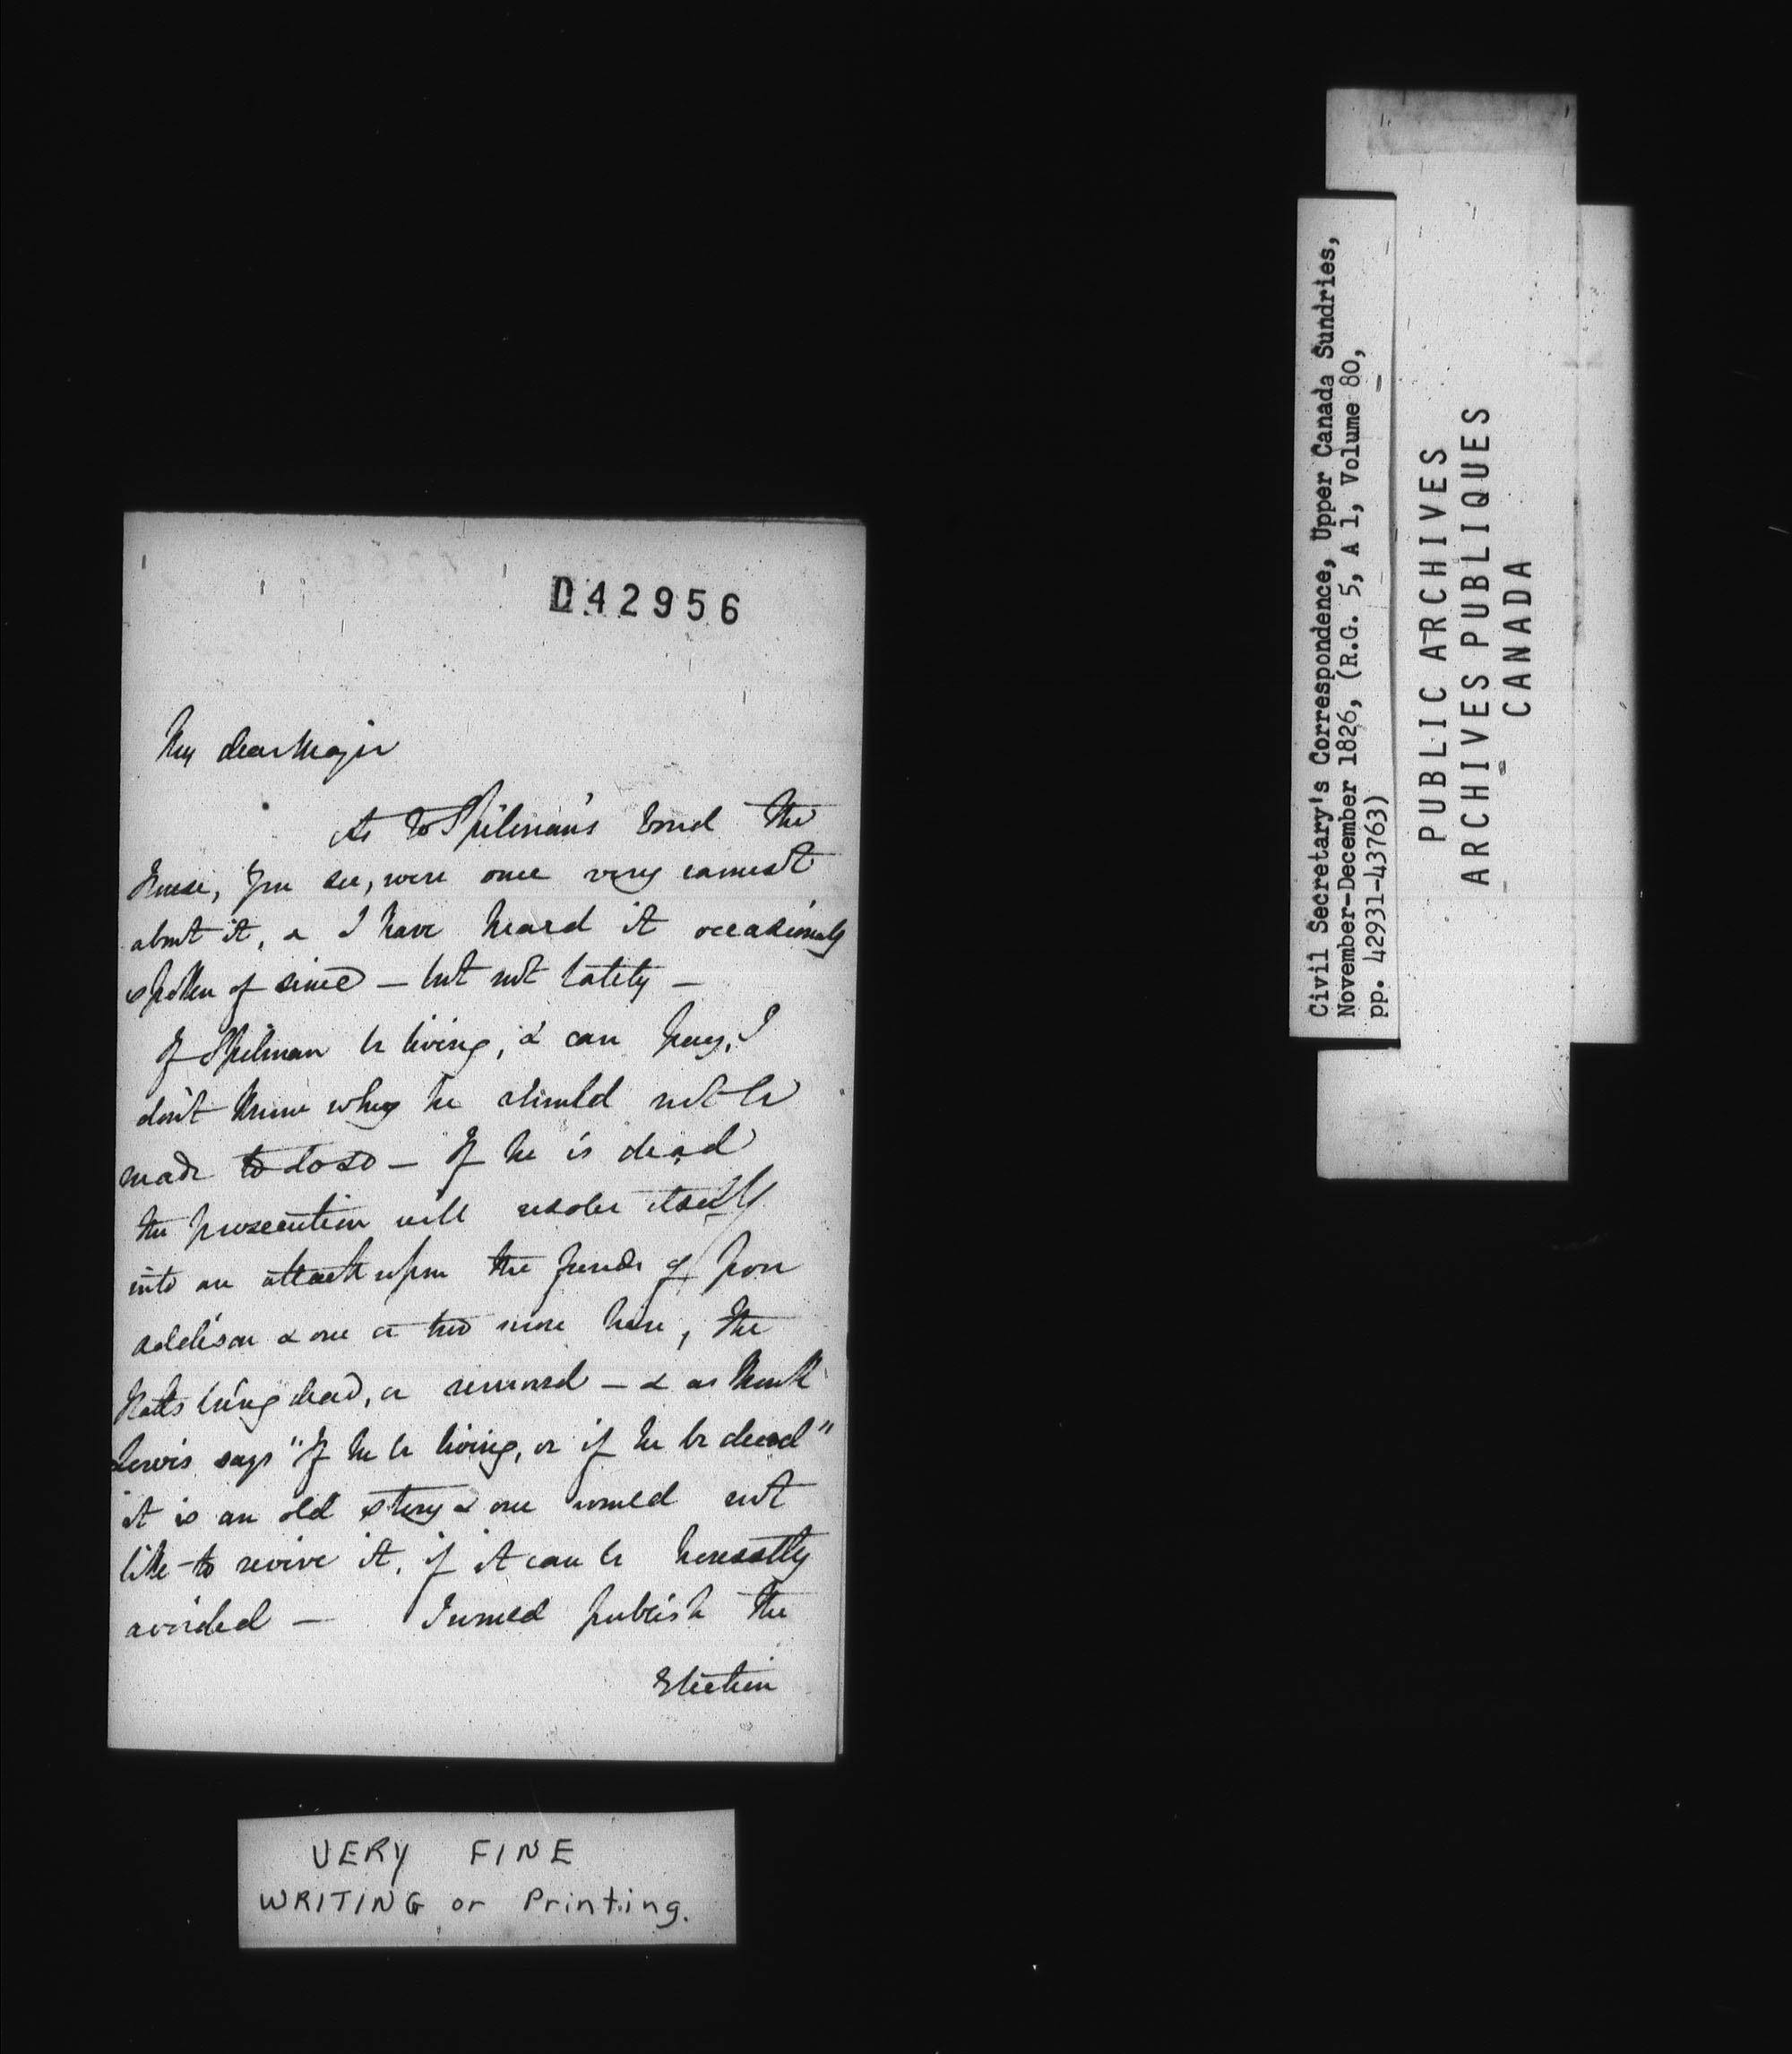 D42956
My dear Major
As to Spilman's bond the
House, you see, were once very earnest
about it, & I have heard it occasionaly
spoken of since – but not lately –
If Spilman be living, & can pay, I
don't know why he should not be
made to do so – If he is dead
the prosecution will resolve itself
into an attack upon the funds of poor
Addison & one or two more here, the
rest being dead, or removed – & as Monk
Lewis says "If he be living, or if he be dead"
it is an old story & one would not
like to revive it, if it can be honestly
avoided – I would publish the
Election
VERY FINE
WRITING or Printing.
Civil Secretary's Correspondence, Upper Canada Sundries,
November-December 1826, (R.G. 5, A 1, Volume 80,
pp. 42931-43763)
PUBLIC ARCHIVES
ARCHIVES PUBLIQUES
CANADA